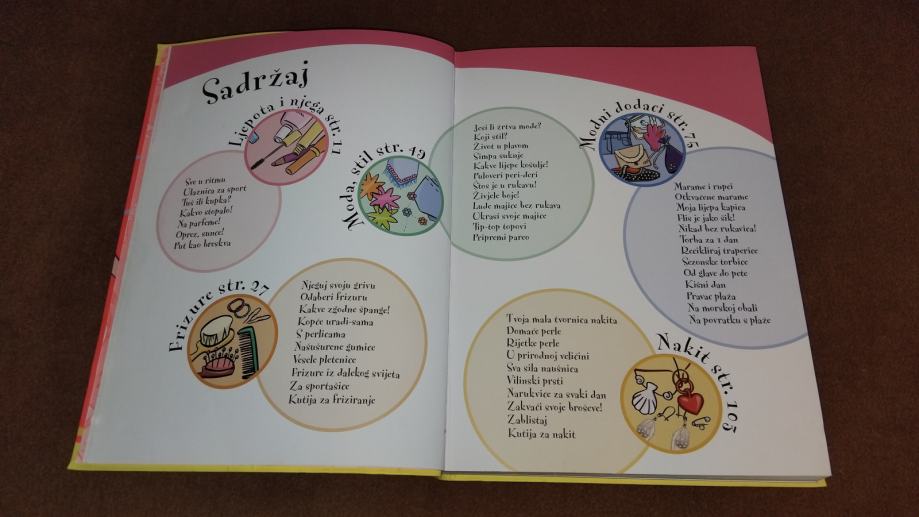 Sadržaj
Ljepota i njega str. 11
Sve u ritmu
Ulaznica za sport
Tuš ili kupka?
Kakvo stopalo!
Na parfeme!
Oprez, sunce!
Put kao breskva
Moda, stil str. 49
Jesi li žrtva mode?
Koji stil?
Život u plavom
Šimpa suknje
Kakve lijepe košulje!
Puloveri peri-deri
Što je u rukavu!
Živjele boje!
Lude majice bez rukava
Ukrasi svoje majice
Tip-top topovi
Pripremi pareo
Frizure str. 27
Njeguj svoju grivu
Odaberi frizuru
Kakve zgodne špange!
Kopče uradi-sama
S perlicama
Našušurene gumice
Vesele pletenice
Frizure iz dalekog svijeta
Za sportašice
Kutija za friziranje
Modni dodaci str. 75
Marame i rupci
Otkvačene marame
Moja lijepa kapica
Flis je jako šik!
Nikad bez rukavica!
Torba za 1 dan
Recikliraj traperice
Sezonske torbice
Od glave do pete
Kišni dan
Pravac plaža
Na morskoj obali
Na povratku s plaže
Nakit str. 103
Tvoja mala tvornica nakita
Domaće perle
Rijetke perle
U prirodnoj veličini
Sva sila naušnica
Vilinski prsti
Narukvice za svaki dan
Zakvači svoje broševe!
Zablistaj
Kutija za nakit